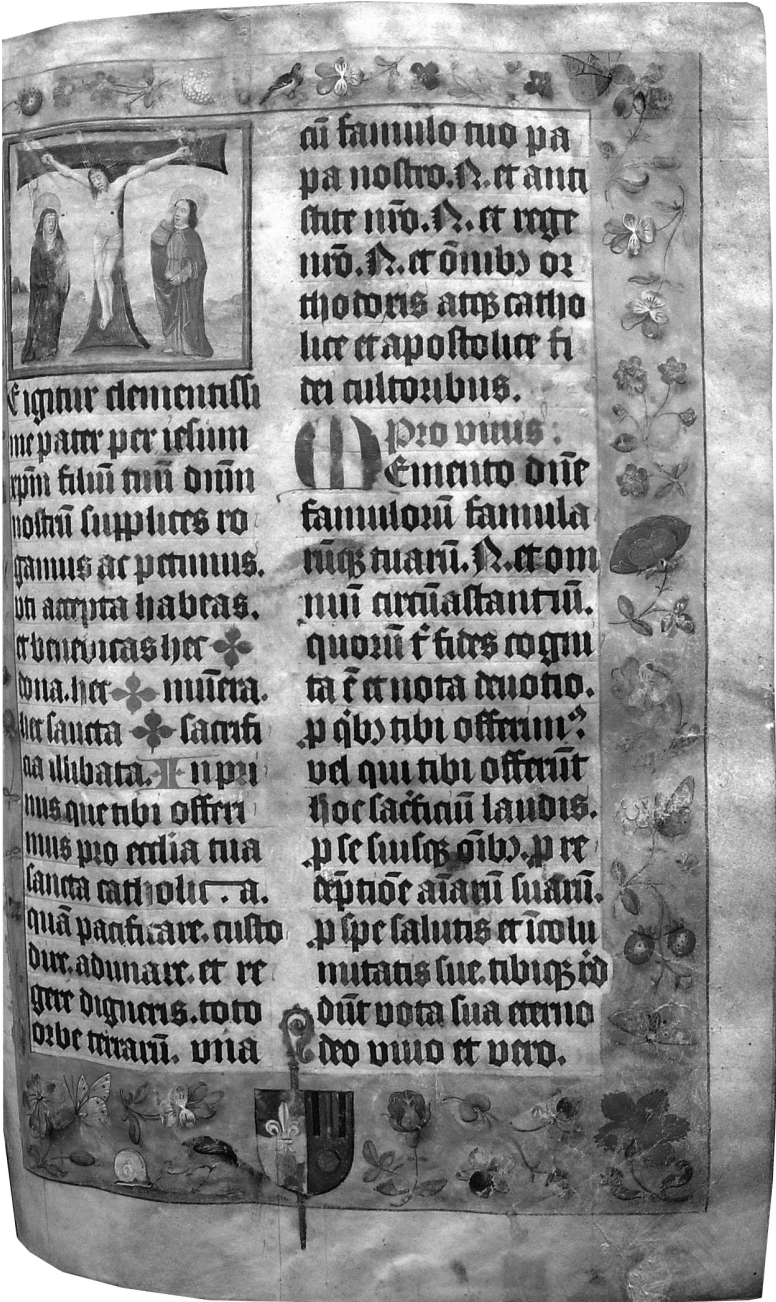 E igitur clementissi
me pater per iesum
xpm̄ filiū tuū dn̄m
nostrū supplices ro
gamus ac petimus.
uti accepta habeas.
et benedicas hec ✠
dona. hec ✠ mun̄era.
hec sancta ✠ sacrifi
cia illibata. Inpri
mis que tibi offeri
mus pro eccl̄ia tua
sancta catholica.
quā pacificare. custo
dire. adunare. et re
gere digneris. toto
orbe terrarū. una
cū famulo tuo pa
pa nostro. N. et anti
stite nr̄o. N. et rege
nr̄o. N. et ōmibꝫ or
thodoxis atqꝫ catho
lice et apostolice fi
dei cultoribus.
Pro viuis:
Memento dn̄e
famulorū famula
rūqꝫ tuarū. N. et om
niū circūastantiū.
quorū t̄ fides cogni
ta ē et nota deuotio.
ꝓ qͥbꝫ tibi offerimꝰ
vel qui tibi offerūt
hoc sac̄ficiū laudis.
ꝓ se suisqꝫ ōibꝫ. ꝓ re
dēptiōe aīarū suarū.
ꝓ spe salutis et īcolu
mitatis sue. tibiqꝫ rēd
dūt vota sua eterno
deo viuo et vero.